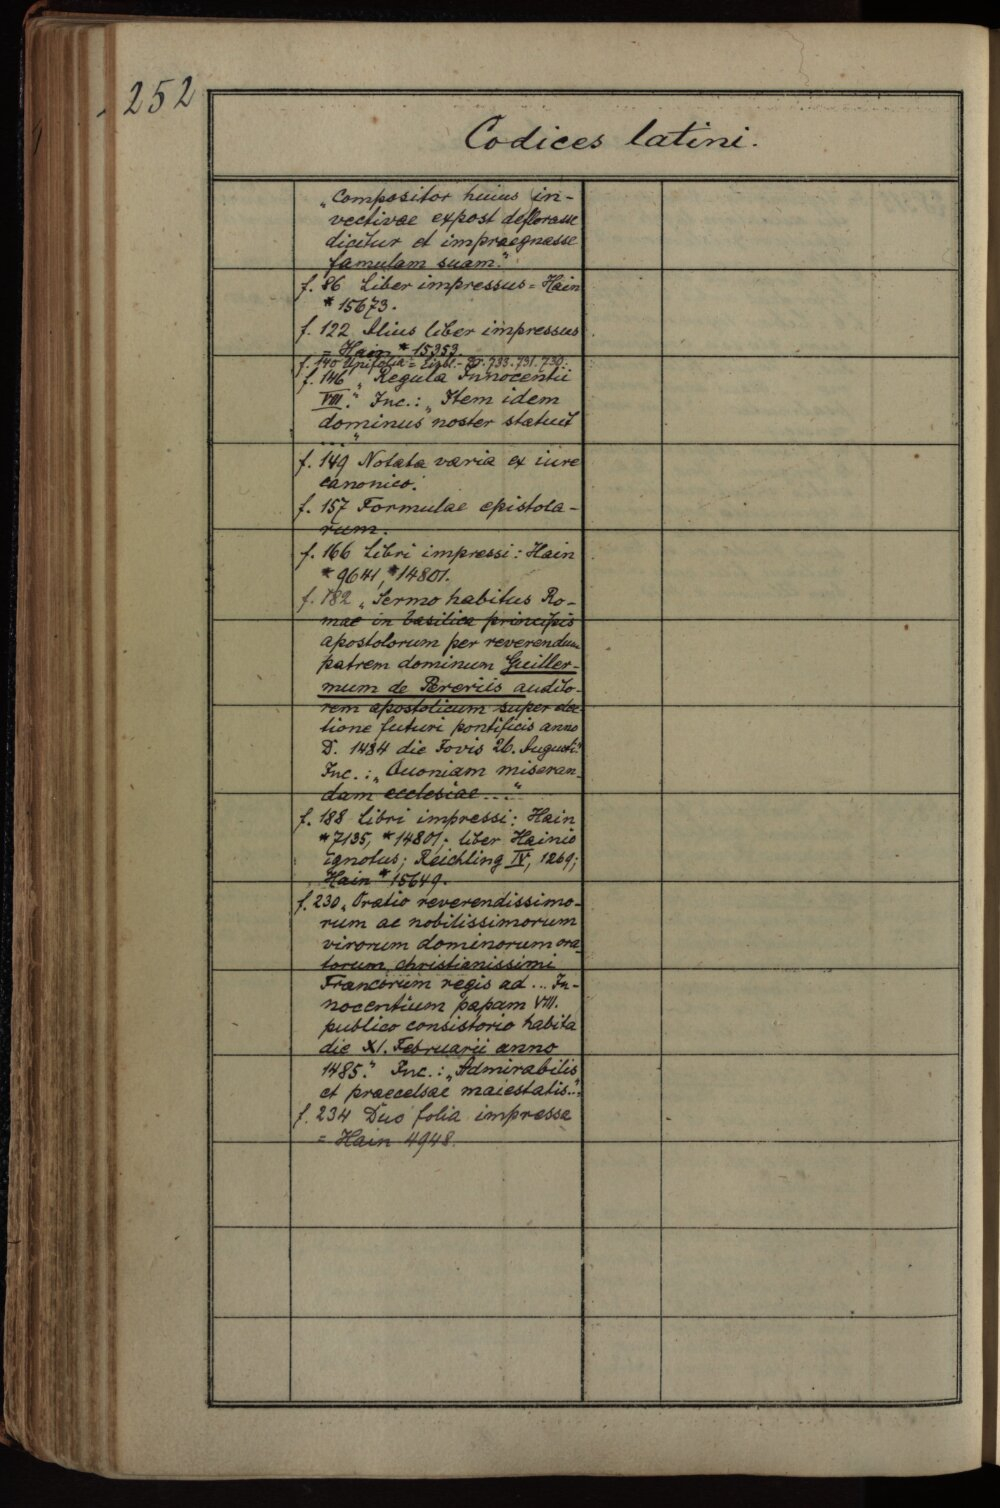 252
Codices latini.
„Compositor huius in-
vectivae expost deflorasse
dicitur et impraegnasse
famulam suam.“
f. 86 Liber impressus = Hain
*15673.
f. 122 Alius liber impressus
= Hain *15353
f. 140 Unifolia = Einbl.-Dr. 733. 731. 730.
f. 146 „Regula Innocentii
VIII.“ Inc.: „Item idem
dominus noster statuit
...“
f. 149 Notata varia ex iure
canonico.
f. 157 Formulae epistola-
rum.
f. 166 Libri impressi: Hain
*9641, *14801.
f. 182 „Sermo habitus Ro-
mae in basilica principis
apostolorum per reverendum
patrem dominum Guiller-
mum de Pereriis audito-
rem apostolicum super elec
tione futuri pontificis anno
D. 1484 die Iovis 26. Augusti“
Inc.: „Quoniam miseran-
dam ecclesiae ...“
f. 188 Libri impressi: Hain
*7135, *14801; liber Hainio
ignotus; Reichling IV, 1269;
Hain *15649.
f. 230 „Oratio reverendissimo-
rum ac nobilissimorum
virorum dominorum ora
torum christianissimi
Francorum regis ad ... In-
nocentium papam VIII.
publico consistorio habita
die XI. Februarii anno
1485.“ Inc.: „Admirabilis
et praecelsae maiestatis..“
f. 234 Duo folia impressa
= Hain 4948.